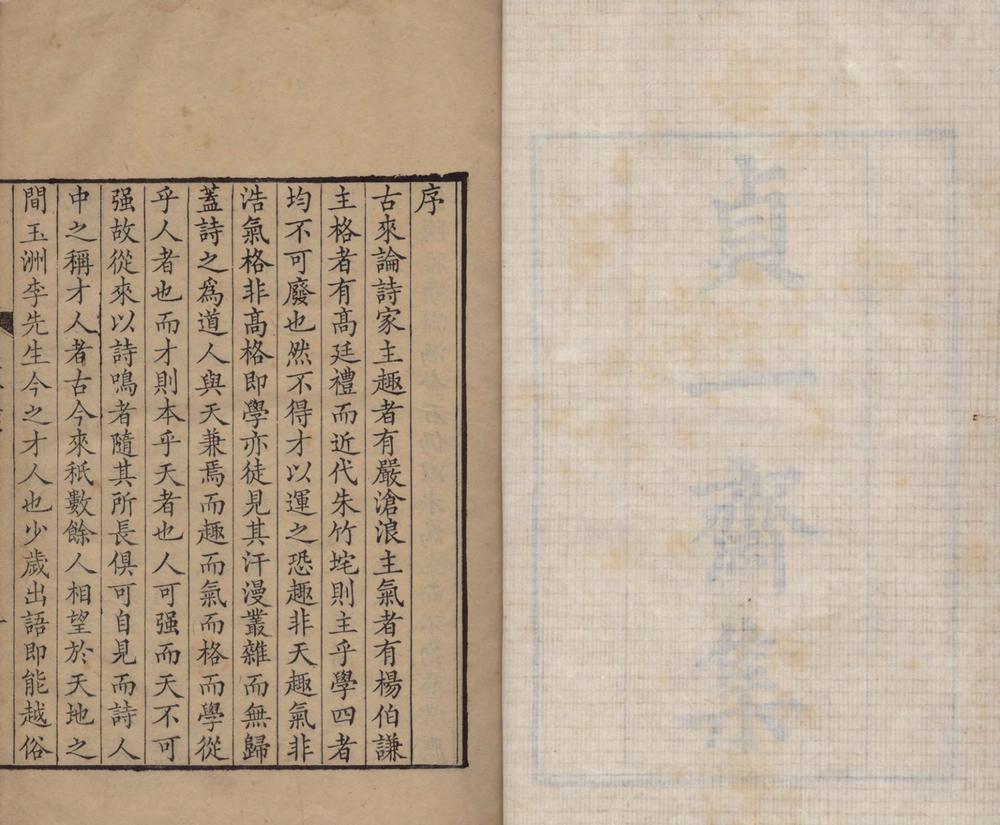 貞一齋集
序
古來論詩家主趣者有嚴滄浪主氣者有楊伯謙
主格者有高廷禮而近代朱竹垞則主乎學四者
均不可廢也然不得才以運之恐趣非天趣氣非
浩氣格非高格即學亦徒見其汗漫叢雜而無歸
蓋詩之爲道人與天兼焉而趣而氣而格而學從
乎人者也而才則本乎天者也人可强而天不可
强故從來以詩鳴者隨其所長俱可自見而詩人
中之稱才人者古今來秖數餘人相望於天地之
間玉洲李先生今之才人也少歲出語即能越俗